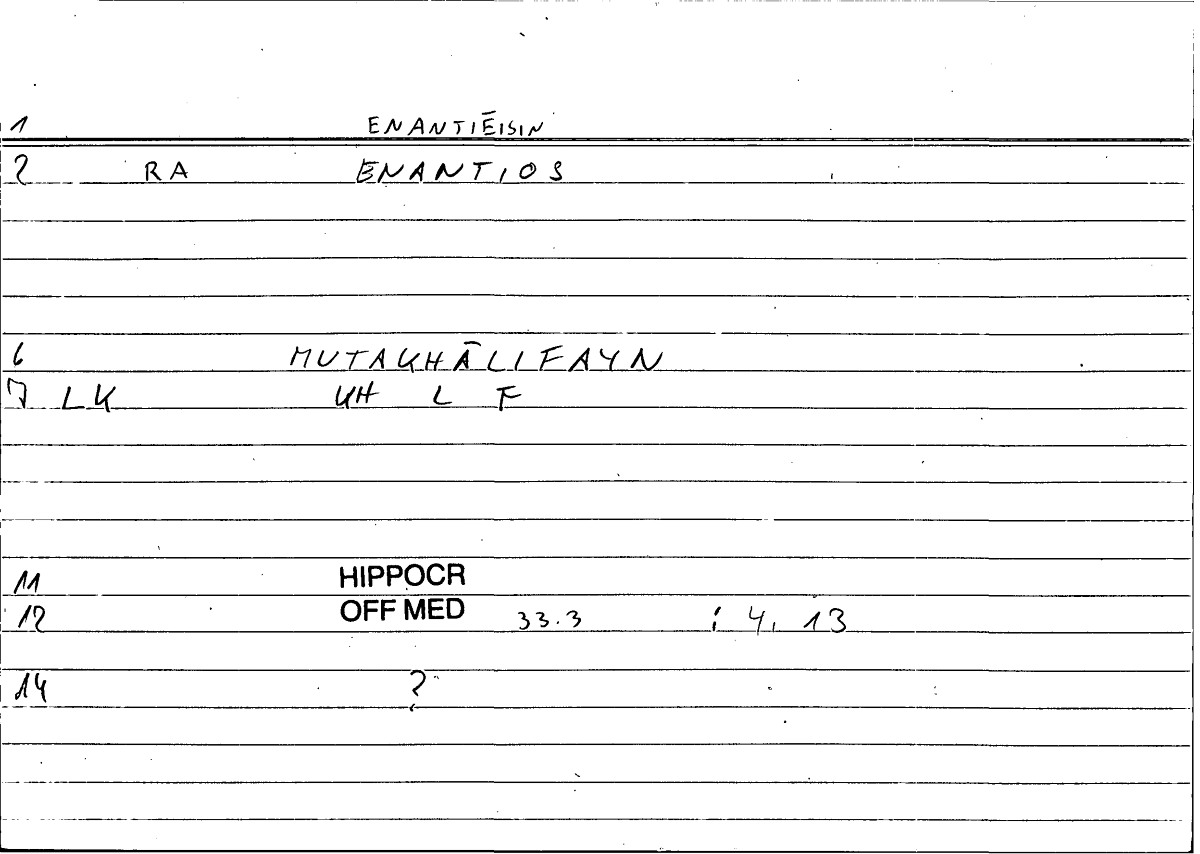 1 ENANTIĒISIN
2 RA ENANTIOS
6 MUTAKHĀLIFAYN
7 LK KH L F
11 HIPPOCR
12 OFF MED 33.3 ; 4, 13
14 ?